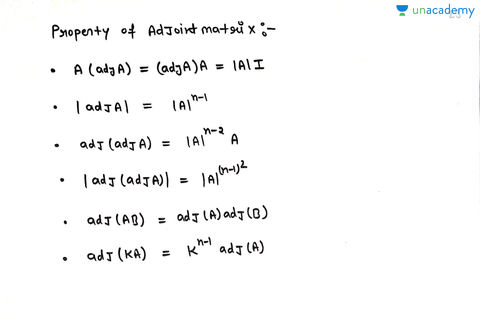 unacademy
Property of Adjoint matrix :-
• A (adjA) = (adjA)A = |A| I
• |adjA| = |A|ⁿ⁻¹
• adj (adjA) = |A|ⁿ⁻² A
• |adj (adjA)| = |A|⁽ⁿ⁻¹⁾²
• adj (AB) = adj (A) adj (B)
• adj (KA) = Kⁿ⁻¹ adj (A)